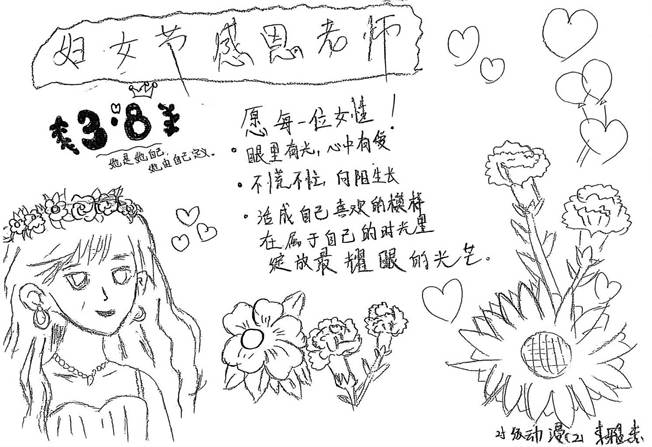 妇女节感恩老师
3·8
她是她自己,
她由自己定义。
愿每一位女性!
·眼里有光,心中有爱
·不慌不忙,向阳生长
·活成自己喜欢的模样
在属于自己的时光里
绽放最耀眼的光芒。
动漫(2)